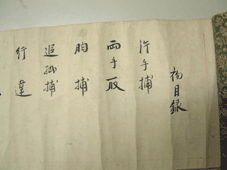 目録
片手捕
両手取
胸捕
追捕
行違